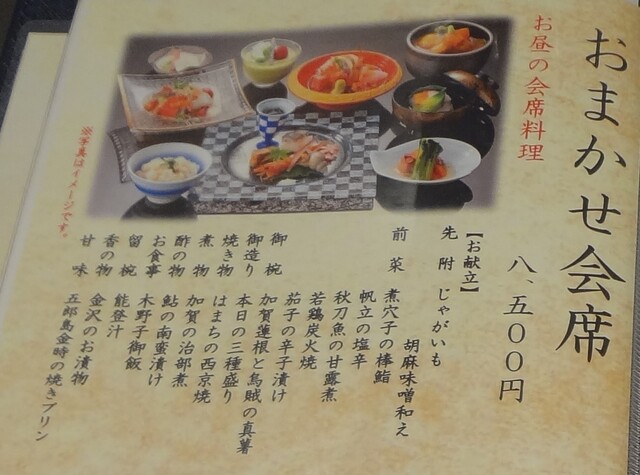 おまかせ会席
八、五００円
お昼の会席料理
【お献立】
先附 じゃがいも
胡麻味噌和え
前菜 煮穴子の棒鮨
帆立の塩辛
秋刀魚の甘露煮
若鶏炭火焼
茄子の辛子漬け
御椀 加賀蓮根と烏賊の真薯
御造り 本日の三種盛り
焼き物 はまちの西京焼
煮物 加賀の治部煮
酢の物 鮎の南蛮漬け
お食事 木野子御飯
留椀 能登汁
香の物 金沢のお漬物
甘味 五郎島金時の焼きプリン
※写真はイメージです。